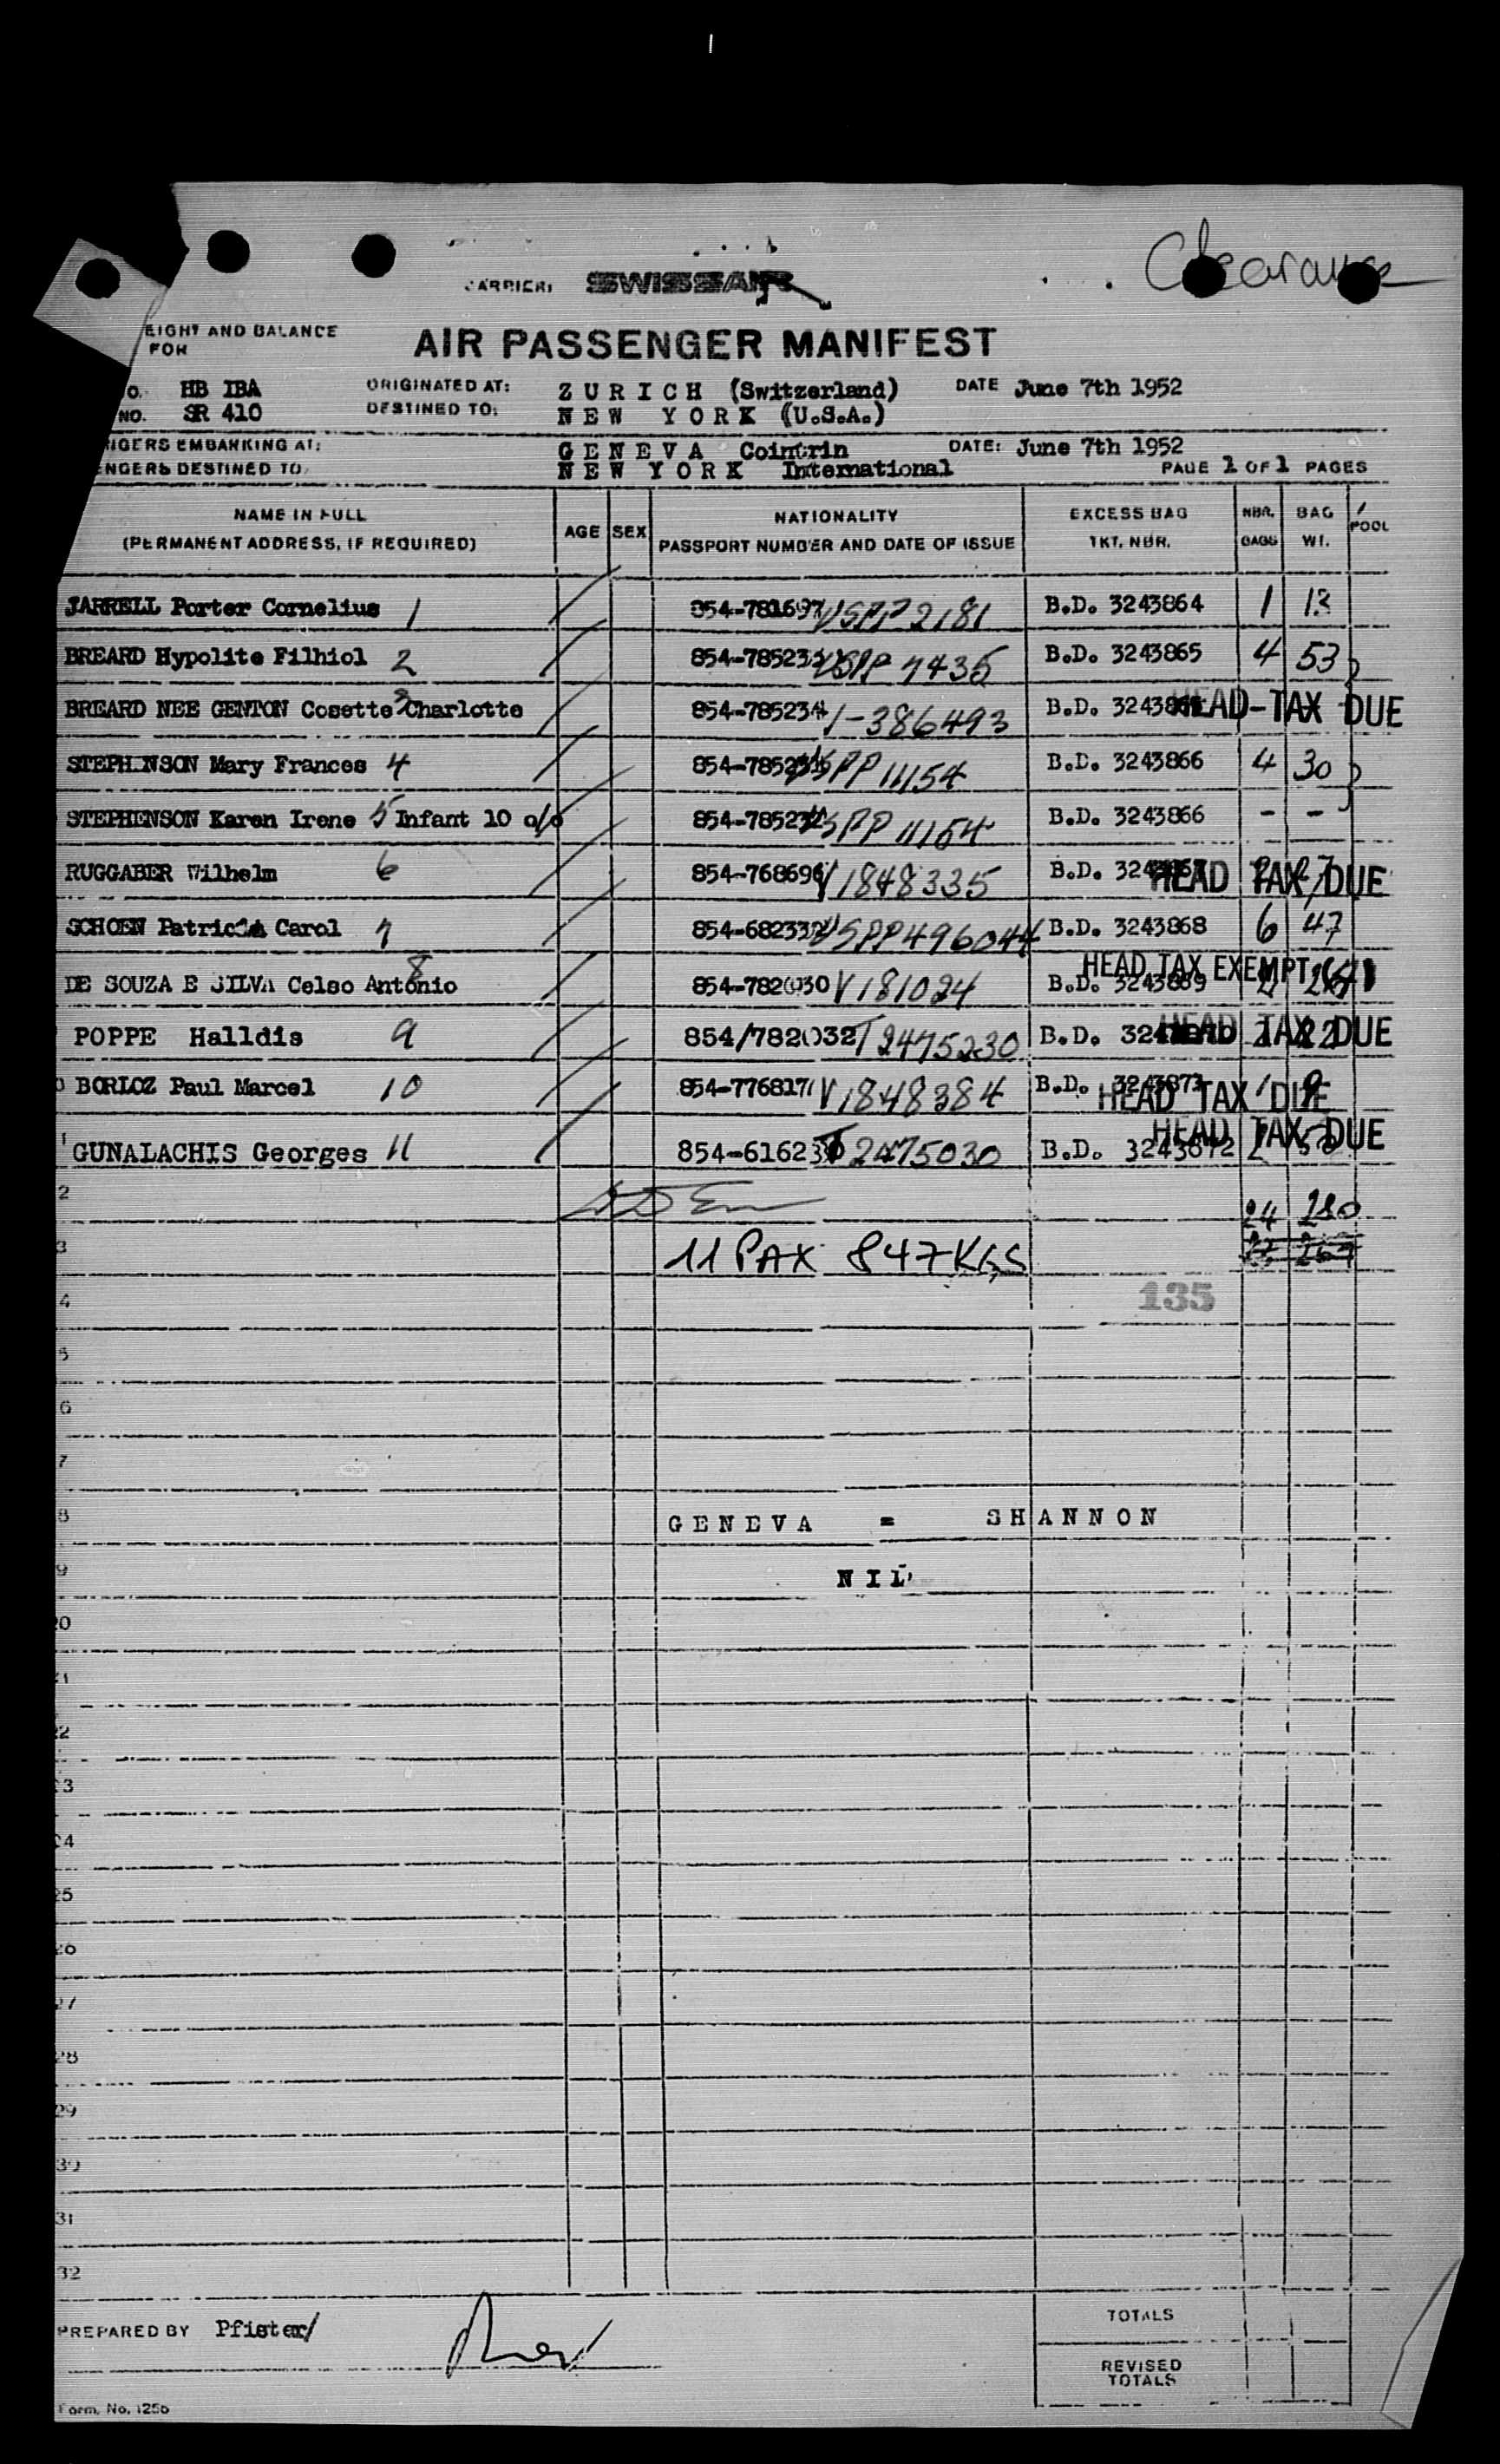 Clearance
CARRIER: SWISSAIR
EIGHT AND BALANCE
FOR
AIR PASSENGER MANIFEST
O. HB IBA ORIGINATED AT: ZURICH (Switzerland) DATE June 7th 1952
NO. SR 410 DESTINED TO: NEW YORK (U.S.A.)
NGERS EMBARKING AT: GENEVA Cointrin DATE: June 7th 1952
ENGERS DESTINED TO NEW YORK International PAGE 1 OF 1 PAGES
NAME IN FULL AGE SEX NATIONALITY EXCESS BAG NBR. BAG / POOL
(PERMANENT ADDRESS, IF REQUIRED) PASSPORT NUMBER AND DATE OF ISSUE TKT. NBR. BAGS WT.
JARRELL Porter Cornelius 1 854-781697 USPP 2181 B.D. 3243864 1 13
BREARD Hypolite Filhiol 2 USPP 7435 B.D. 3243865 4 53
BREARD NEE GENTON Cosette 3 Charlotte 854-785234 V-386493 B.D. HEAD-TAX DUE
STEPHENSON Mary Frances 4 USPP 11154 B.D. 3243866 4 30
STEPHENSON Karen Irene 5 Infant 10 o/o USPP 11154 B.D. 3243866 - -
RUGGABER Wilhelm 6 854-768696 V1848335 B.D. HEAD TAX DUE
SCHOEN Patricia Carol 7 USPP496044 B.D. 3243868 6 47
DE SOUZA E SILVA Celso António 8 854-782030 V181024 B.D. 3243869 HEAD TAX EXEMPT
POPPE Halldis 9 854/782032 T2475230 B.D. HEAD TAX DUE
BORLOZ Paul Marcel 10 854-776817 V1848384 B.D. 3243871 1 9 HEAD TAX DUE
GUNALACHIS Georges 11 T2475030 B.D. 3243872 HEAD TAX DUE
2 24 280
3 11 PAX 847 KGS
4 135
5
6
7
8 GENEVA = SHANNON
9 NIL
20
21
22
23
24
25
26
27
28
29
30
31
32
PREPARED BY Pfister/ TOTALS
REVISED
TOTALS
Form. No. 125b